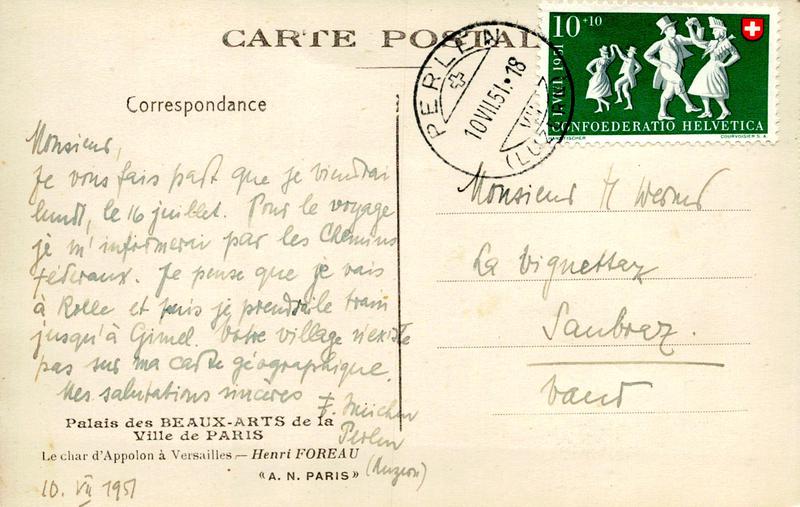 CARTE POSTALE
10+10
1. VIII. 1951
CONFOEDERATIO HELVETICA
COURVOISIER S.A.
PERLEN
10.VII.51.-18
(LUZERN)
Correspondance
Monsieur,
Je vous fais part que je viendrai
lundi, le 16 juillet. Pour le voyage
je m'informerai par les Chemins
fédéraux. Je pense que je vais
à Rolle et puis je prendrai le train
jusqu'à Gimel. Votre village n'existe
pas sur ma carte géographique.
Mes salutations sincères
F.
Perlen
(Luzern)
Monsieur H Werner
La Vignettaz
Saubraz.
Vaud
Palais des BEAUX-ARTS de la
Ville de PARIS
Le char d'Appolon à Versailles — Henri FOREAU
« A. N. PARIS »
10. VII 1951